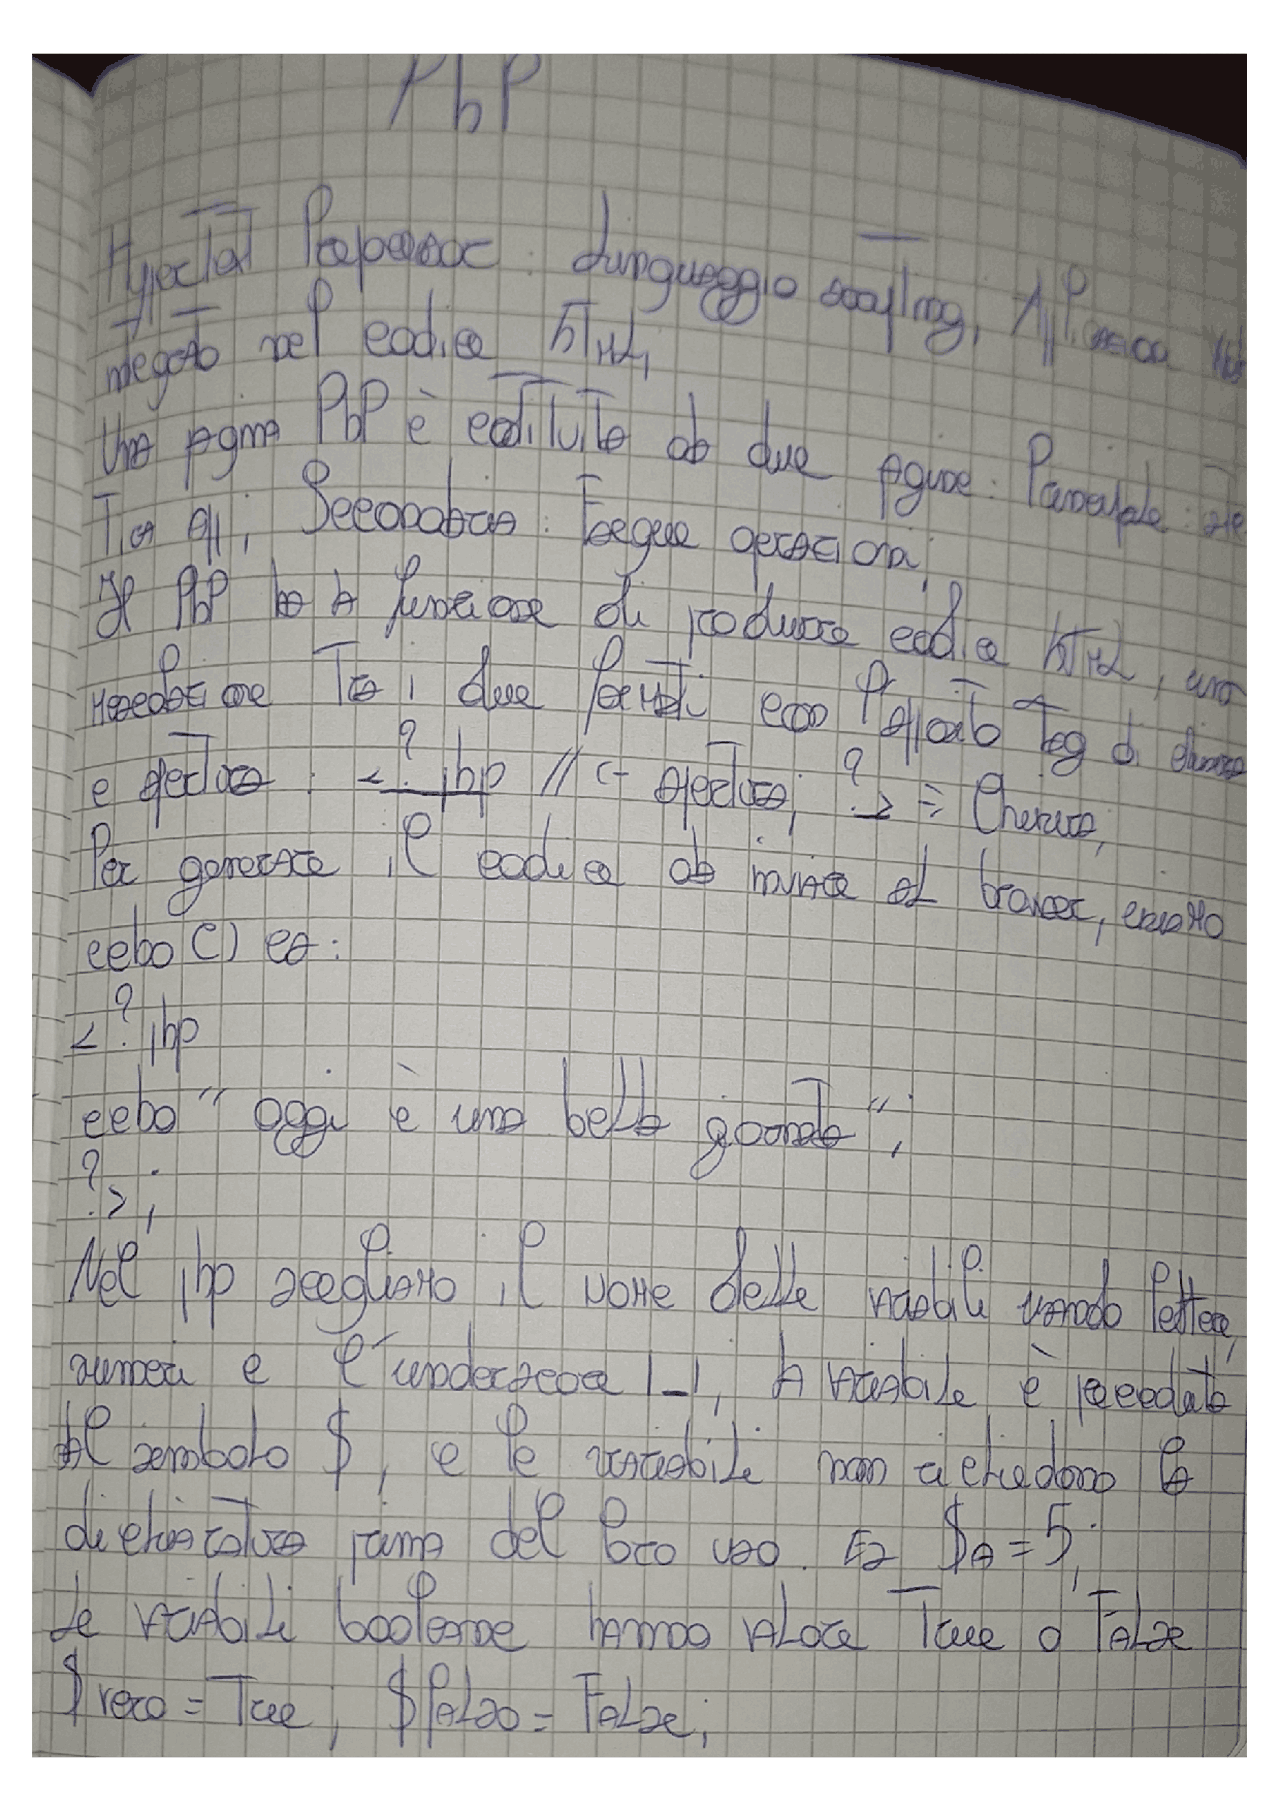 PhP
Hypertext Preprocessor: Linguaggio scripting, Applicazioni
integrato nel codice HTML,
Una pagina PhP è costituita da due pagine: Principale:
Secondaria: Esegue operazioni;
Il PhP ha la funzione di produrre codice HTML, una
i due formati ecco tag di chiusura
e apertura: <?php // <- apertura; ?> = Chiusura;
Per generare il codice da inviare al browser, usiamo
echo () es:
<?php
echo " oggi è una bella giornata ";
?>;
Nel php scegliamo il nome delle variabili usando lettere,
numeri e l'underscore |_|, la variabile è preceduta
al simbolo $, e le variabili non richiedono la
dichiaratura prima del loro uso. Es $a = 5;
Le variabili booleane hanno valore True o False
$vero = True; $falso = False;